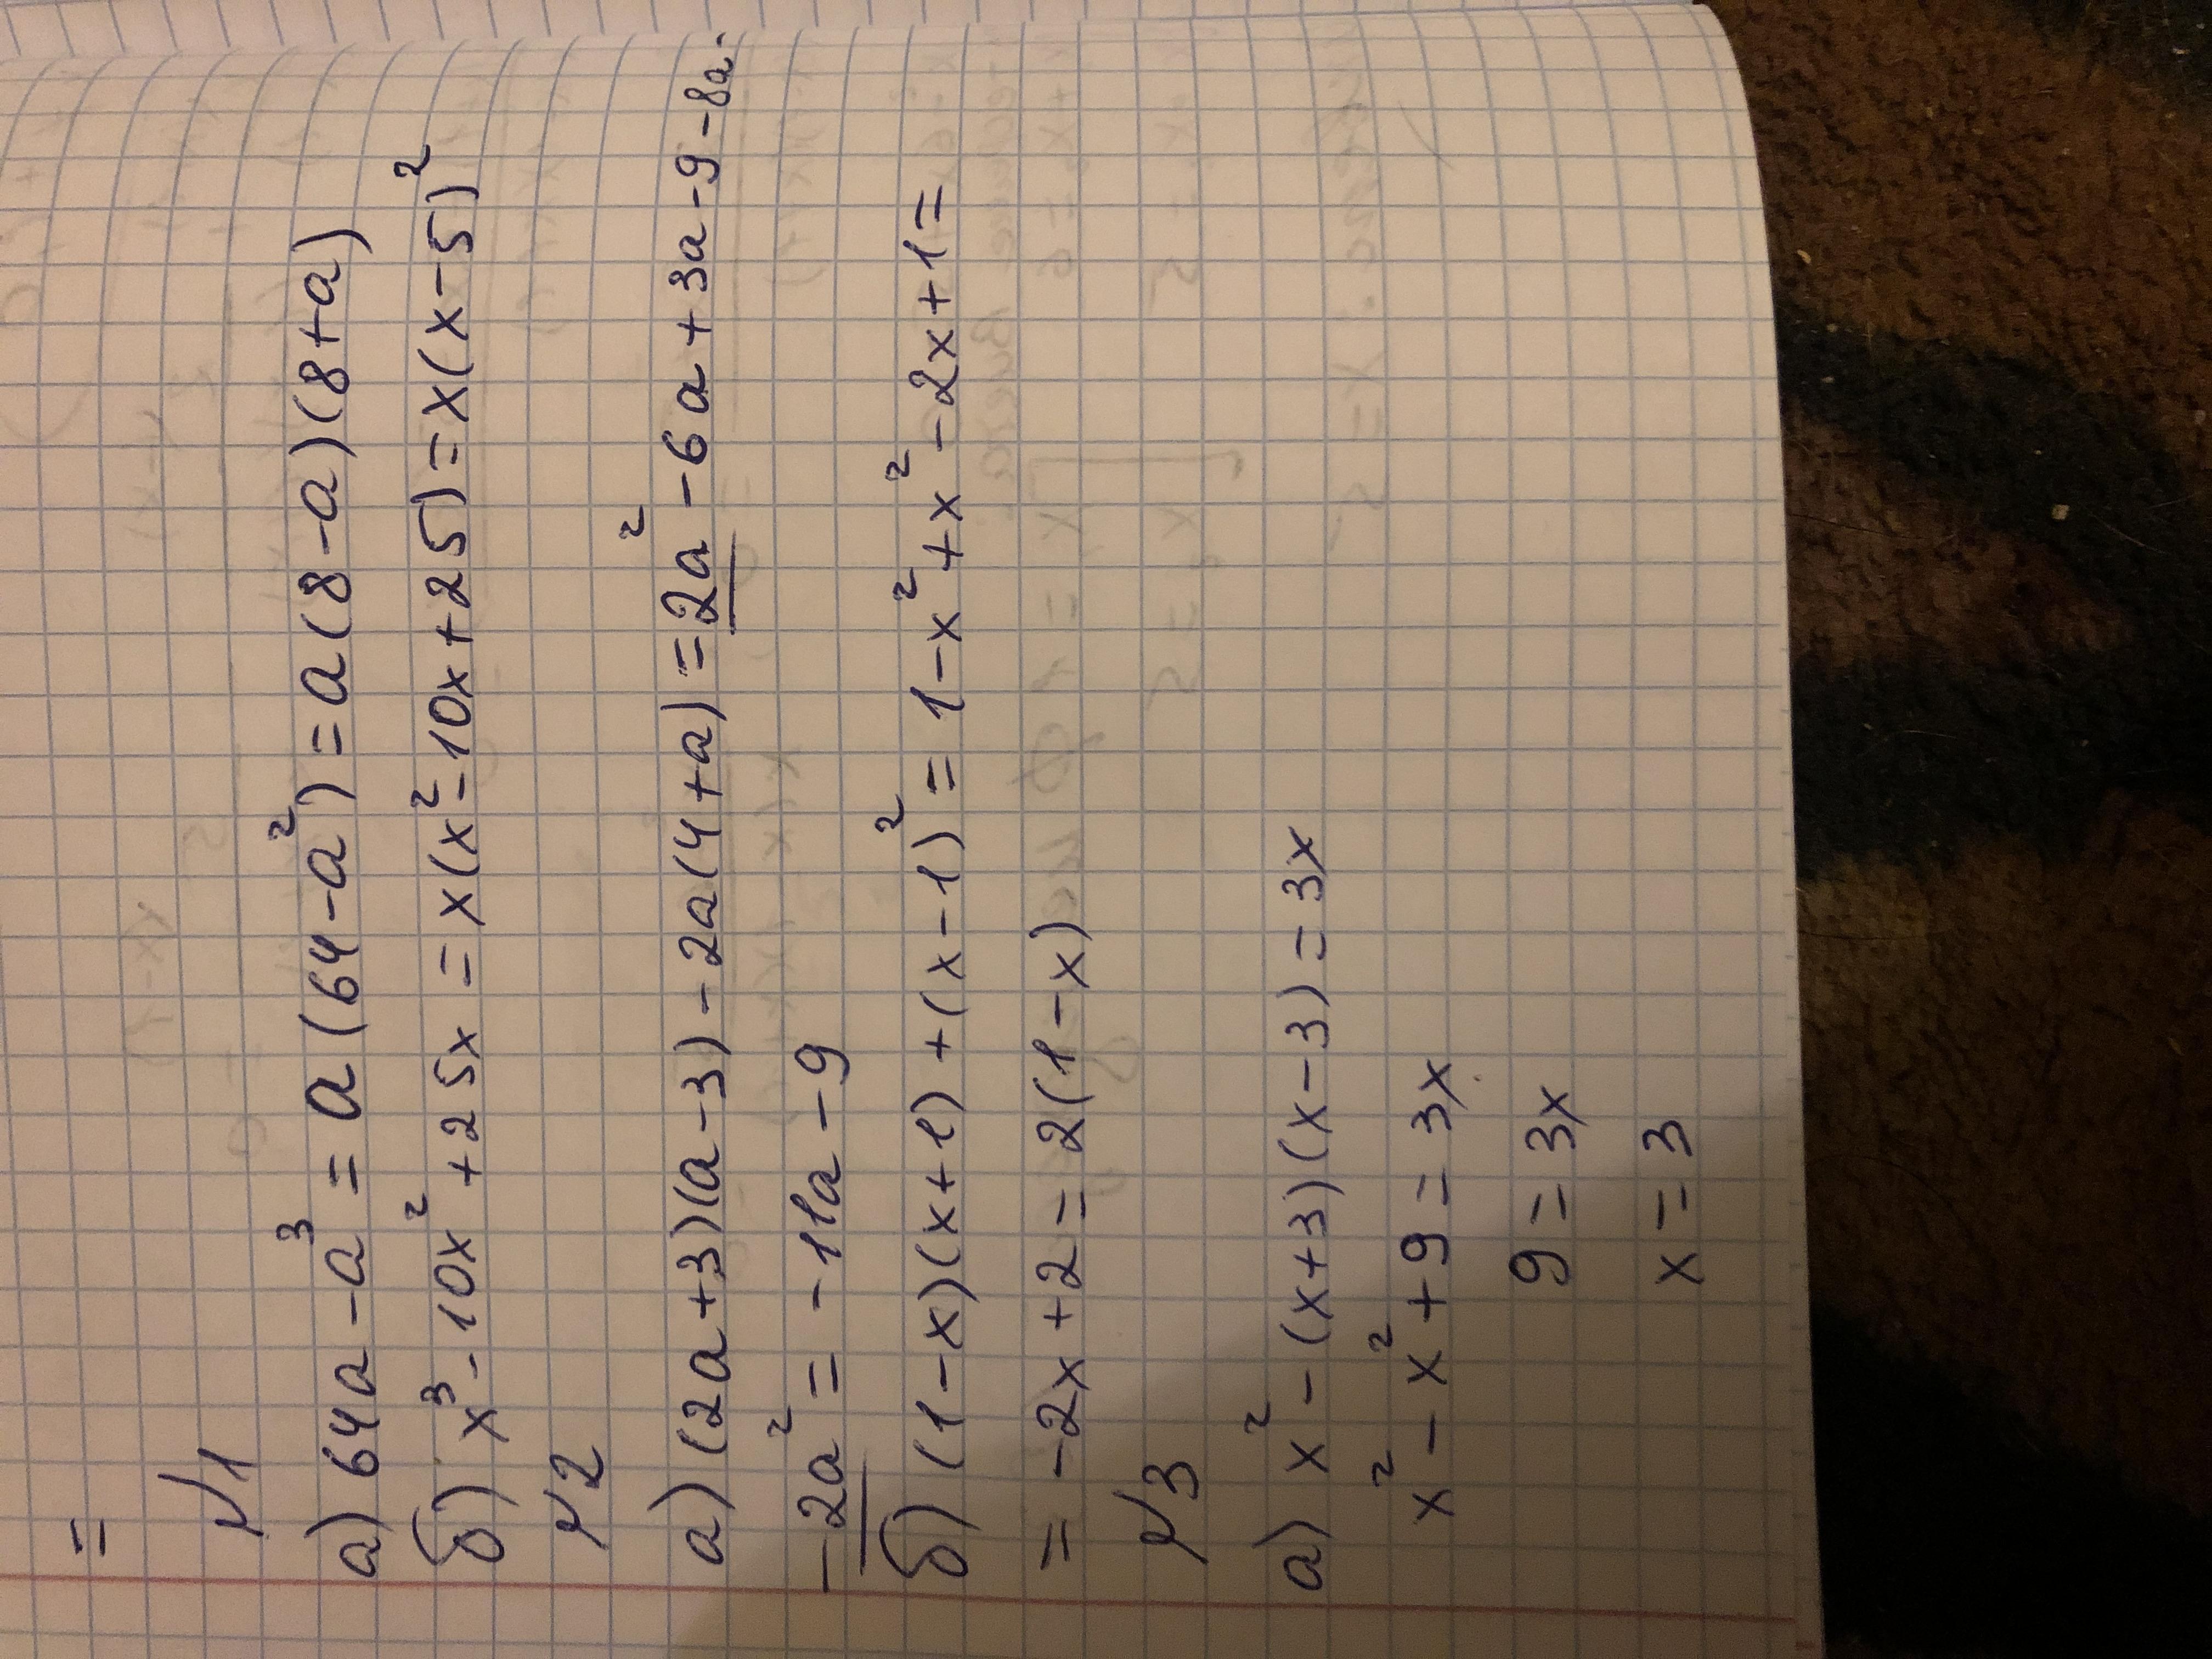 =
№1
а) 64a-a³=a(64-a²)=a(8-a)(8+a)
б) x³-10x²+25x=x(x²-10x+25)=x(x-5)²
№2
а) (2a+3)(a-3)-2a(4+a)=2a²-6a+3a-9-8a-
-2a²=-11a-9
б) (1-x)(x+1)+(x-1)²=1-x²+x²-2x+1=
=-2x+2=2(1-x)
№3
а) x²-(x+3)(x-3)=3x
x²-x²+9=3x
9=3x
x=3